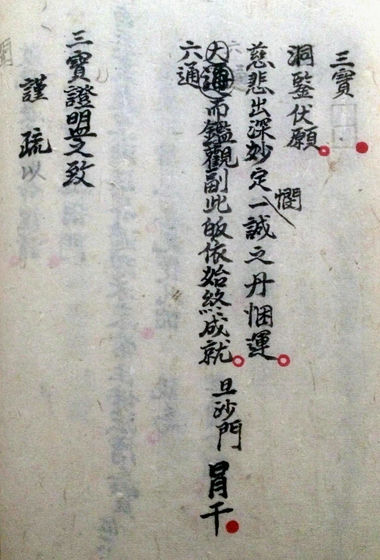 三寶
洞鑒伏願
慈悲出深妙定一誠之丹悃運
憫
六通
通而鑑觀副此皈依始終成就 旦沙門 冐干
三寶證盟之致
謹疏